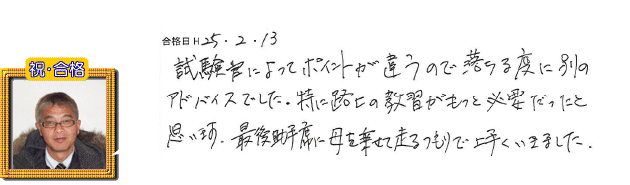 合格日 H25.2.13
祝・合格
試験官によってポイントが違うので落ちる度に別の
アドバイスでした。特に路上の教習がもっと必要だったと
思います。最後助手席に母を乗せて走るつもりで上手くいきました。